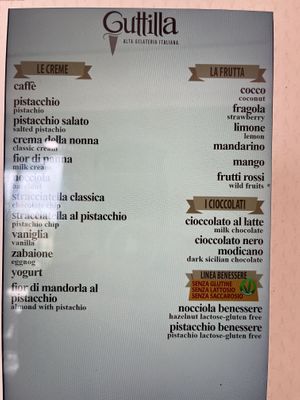 Guttilla
ALTA GELATERIA ITALIANA
LE CREME
caffè
pistacchio
pistachio
pistacchio salato
salted pistachio
crema della nonna
classic cream
fior di panna
milk cream
nocciola
hazelnut
stracciatella classica
chocolate chip
stracciatella al pistacchio
pistachio chip
vaniglia
vanilla
zabaione
eggnog
yogurt
fior di mandorla al
pistacchio
almond with pistachio
LA FRUTTA
cocco
coconut
fragola
strawberry
limone
lemon
mandarino
mango
frutti rossi
wild fruits
I CIOCCOLATI
cioccolato al latte
milk chocolate
cioccolato nero
modicano
dark sicilian chocolate
LINEA BENESSERE
SENZA GLUTINE
SENZA LATTOSIO
SENZA SACCAROSIO
nocciola benessere
hazelnut lactose-gluten free
pistacchio benessere
pistachio lactose-gluten free